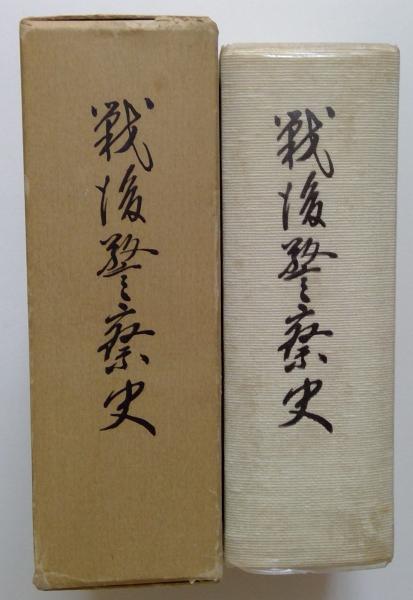 戦後警察史
戦後警察史